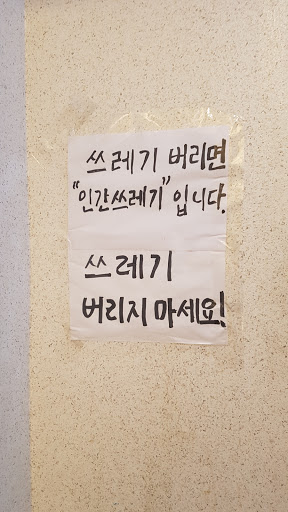 쓰레기 버리면
"인간쓰레기"입니다.
쓰레기
버리지 마세요!